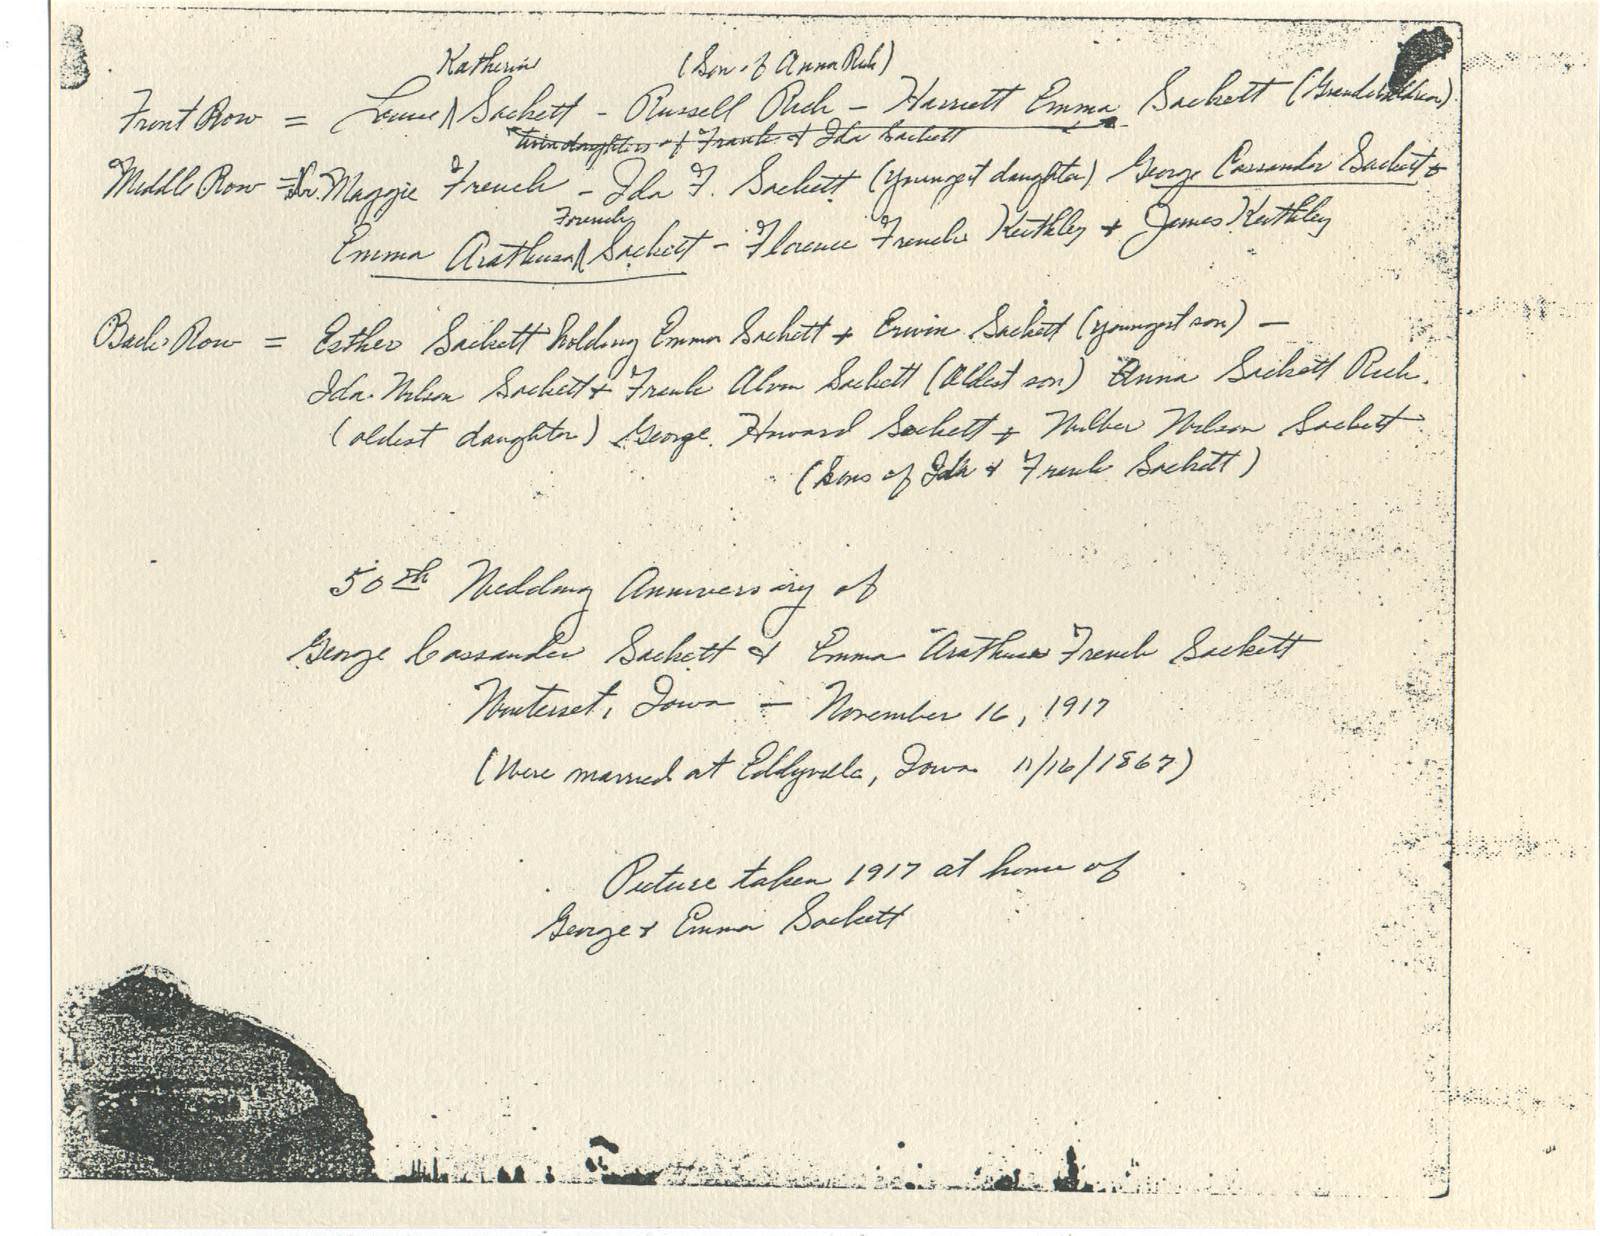 Katherin (Son of Anna Rich)
Front Row = Louise Sackett - Russell Rich - Harriett Emma Sackett (Grandchildren)
twin daughters of Frank & Ida Sackett
Middle Row = Dr. Maggie French - Ida F. Sackett (youngest daughter) George Cassander Sackett &
French
Emma Arathusa Sackett - Florence French Keithley + James Keithley
Back Row = Esther Sackett holding Emma Sackett + Erwin Sackett (youngest son) -
Ida Nelson Sackett + Frank Alvin Sackett (oldest son) Anna Sackett Rich
(oldest daughter) George Howard Sackett + Wilber Nelson Sackett
(Sons of Ida & Frank Sackett)
50th Wedding Anniversary of
George Cassander Sackett & Emma Arathusa French Sackett
Winterset, Iowa - November 16, 1917
(Were married at Eddyville, Iowa 11/16/1867)
Picture taken 1917 at home of
George & Emma Sackett